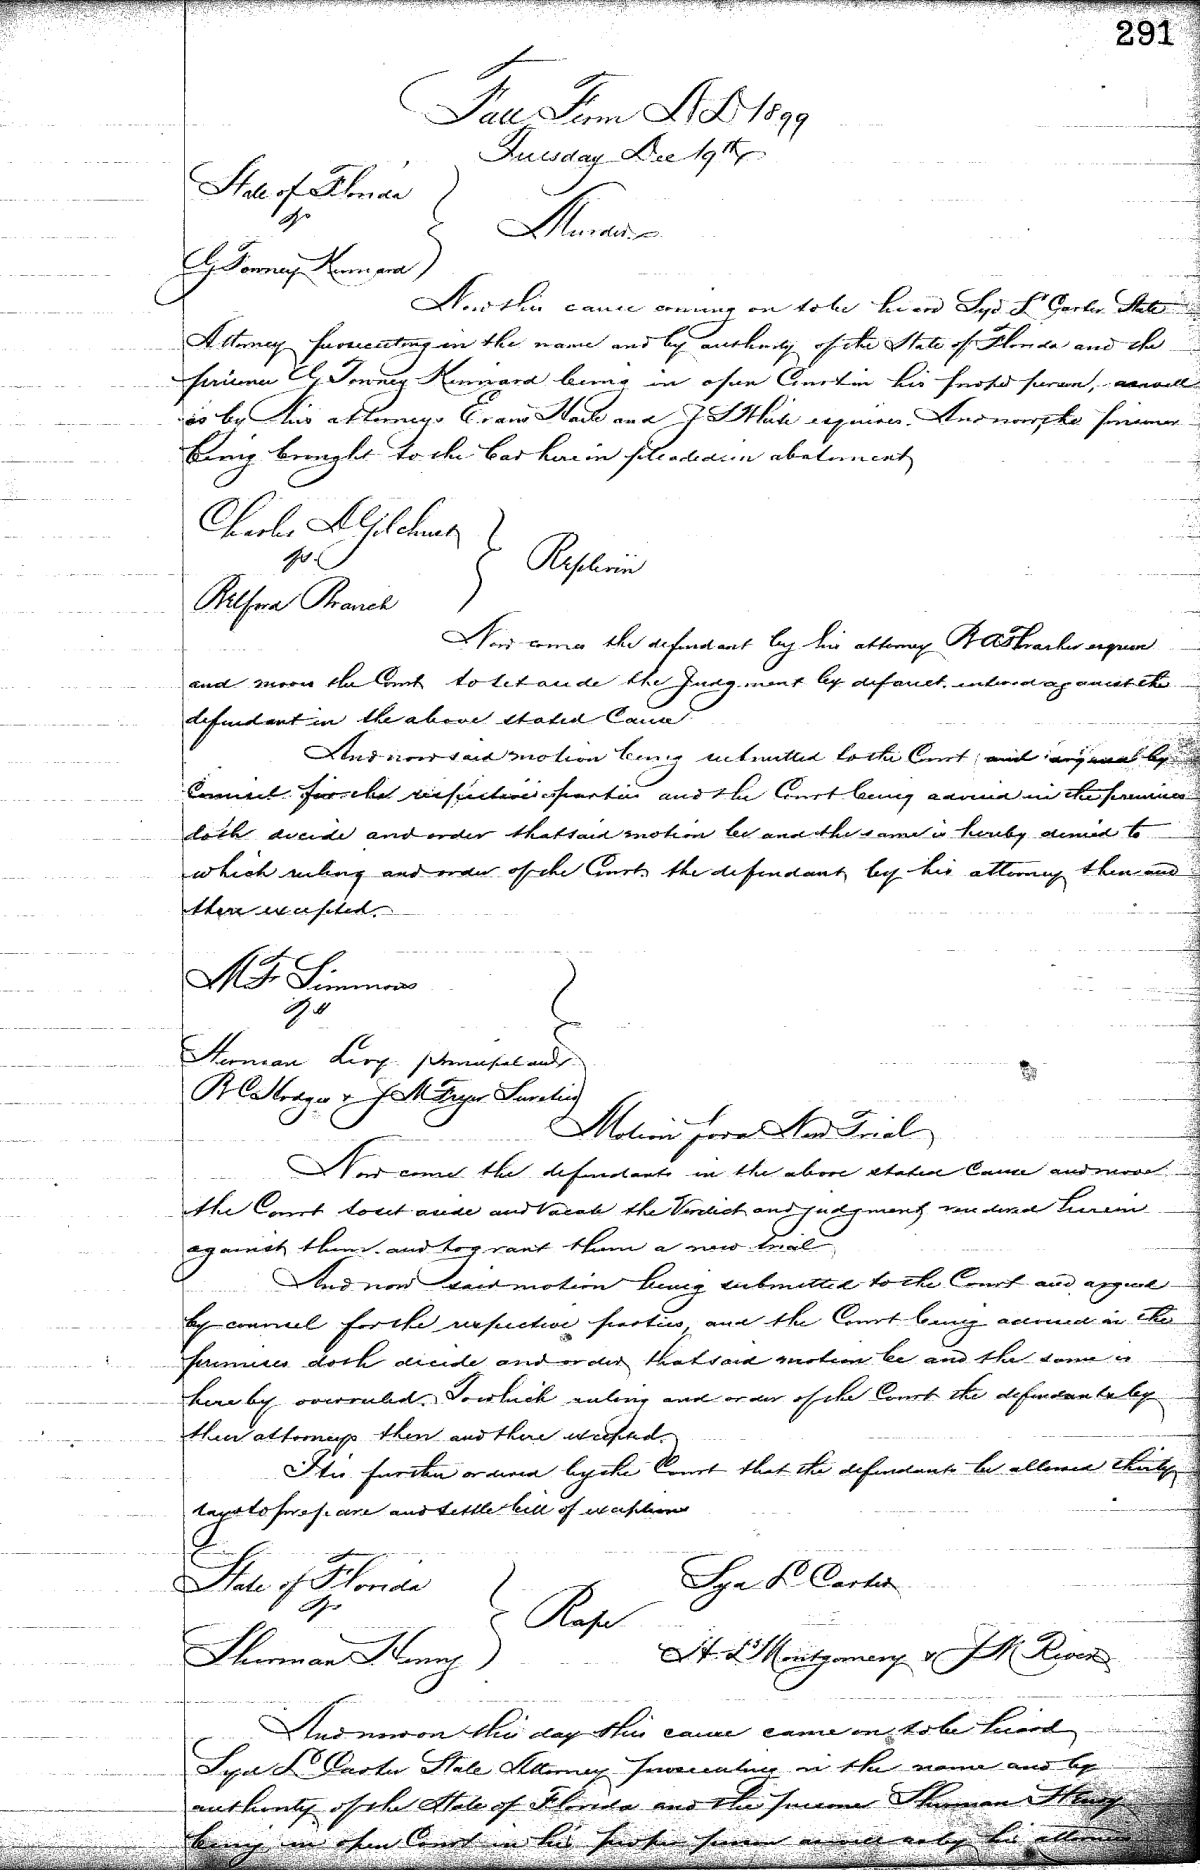 291
Fall Term A D 1899
Tuesday Dec 19th
State of Florida
vs
Murder
G Towney Kennard
Now this cause coming on to be heard Syd L Carter State
Attorney prosecuting in the name and by authority of the State of Florida and the
prisoner G. Towney Kennard being in open Court in his proper person, as well
as by his attorneys Evans Haile and J S White esquires. And now, the prisoner
being brought to the bar herein pleaded in abatement
Charles A Gilchrist
vs
Replevin
Belford Branch
Now comes the defendant by his attorney esquire
and moves the Court to set aside the Judgment by default entered against the
defendant in the above stated Cause
And now said motion being submitted to the Court and argued by
Counsel for the respective parties and the Court being advised in the premises
doth decide and order that said motion be and the same is hereby denied to
which ruling and order of the Court the defendant by his attorney then and
there excepted.
M F Simmons
vs
Herman Levy principal and
B C Hodges & J M Fryer Sureties
Motion for a New Trial
Now come the defendants in the above stated Cause and move
the Court to set aside and Vacate the Verdict and judgment rendered herein
against them and to grant them a new trial
And now said motion being submitted to the Court and argued
by counsel for the respective parties, and the Court being advised in the
premises doth decide and order that said motion be and the same is
hereby overruled. To which ruling and order of the Court the defendants by
their attorneys then and there excepted.
It is further ordered by the Court that the defendants be allowed thirty
days to prepare and settle bill of exceptions
State of Florida
vs
Rape
Syd L Carter
Sherman Henry
H. L. Montgomery & J M Rivers
And now on this day this cause came on to be heard
Syd L Carter State Attorney prosecuting in the name and by
authority of the State of Florida and the prisoner Sherman Henry
being in open Court in his proper person as well as by his attorneys